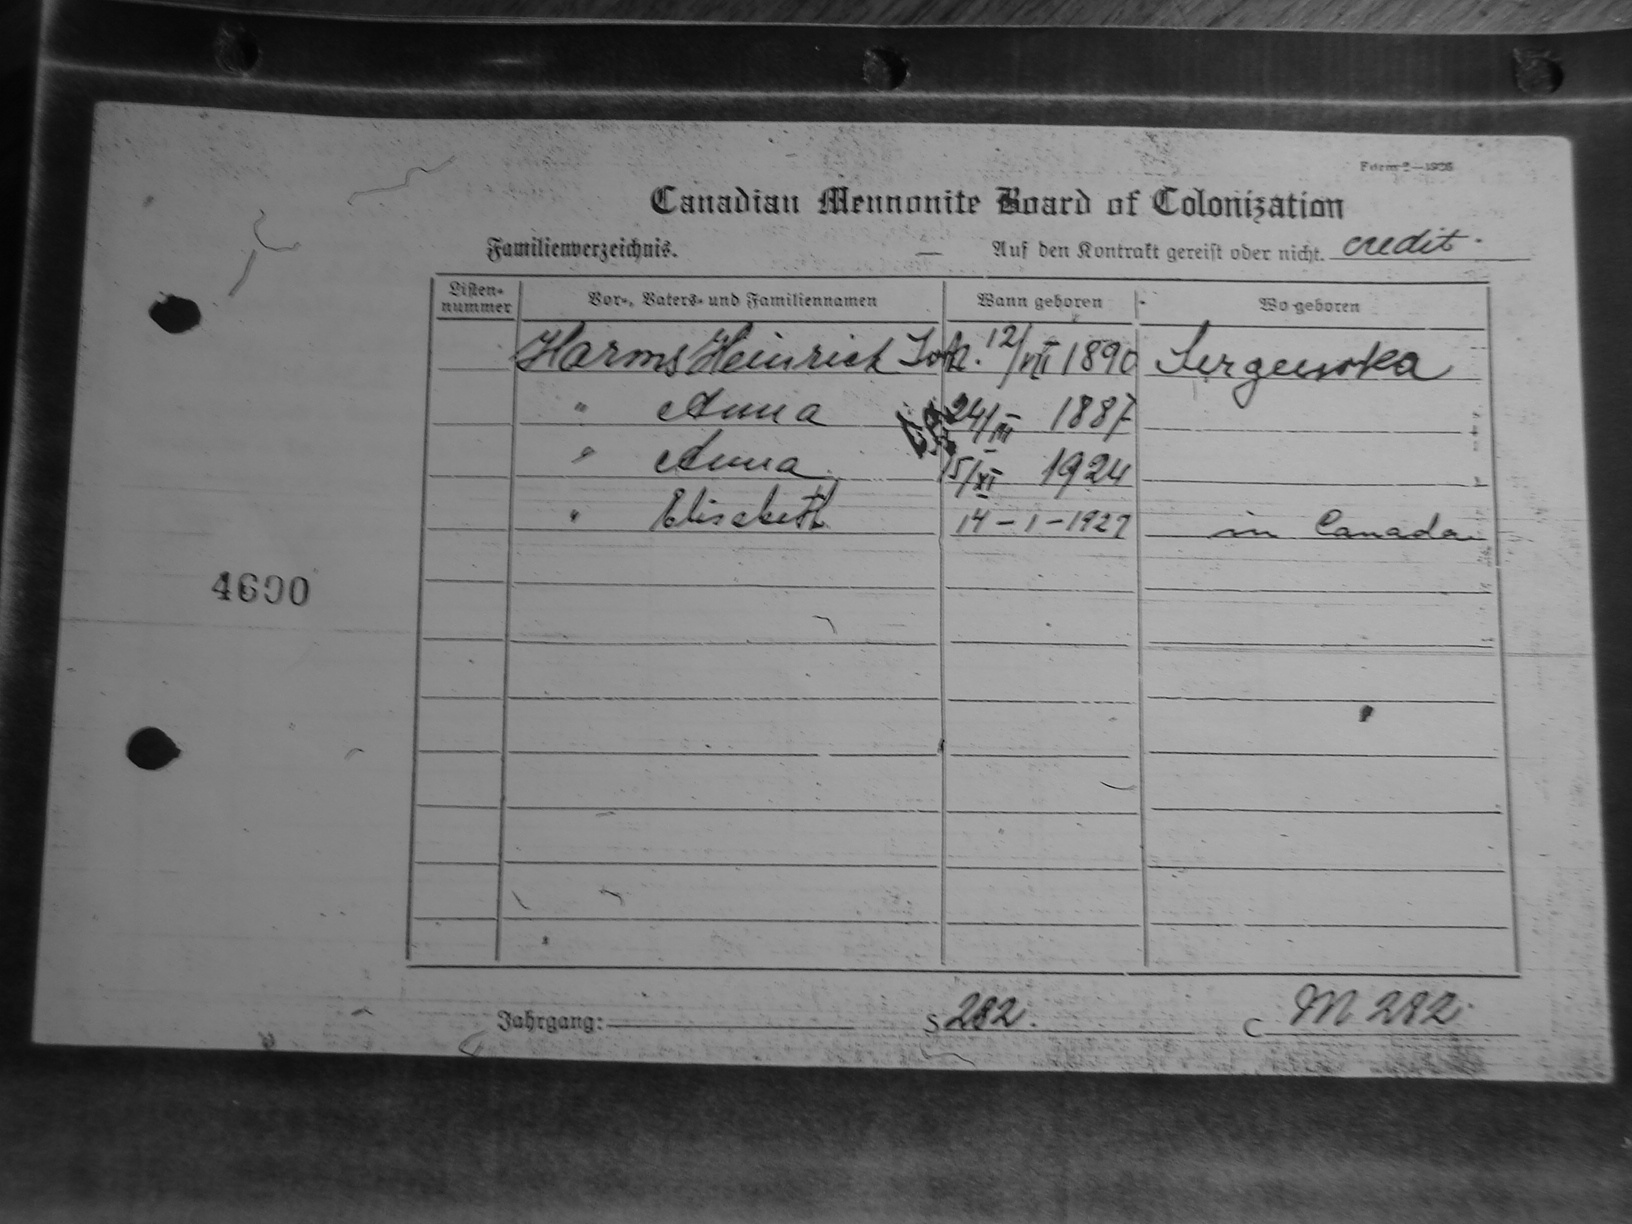 Form 2—1926
Canadian Mennonite Board of Colonization
Familienverzeichnis. — Auf den Kontrakt gereist oder nicht. credit.
Listen-nummer Vor-, Vaters- und Familiennamen Wann geboren Wo geboren
Harms Heinrich Joh. 12/VII 1890 Sergeewka
" Anna 24/III 1887
" Anna 15/XI 1924
" Elisabeth 14-1-1927 in Canada
4600
Jahrgang: S 282. C M 282.